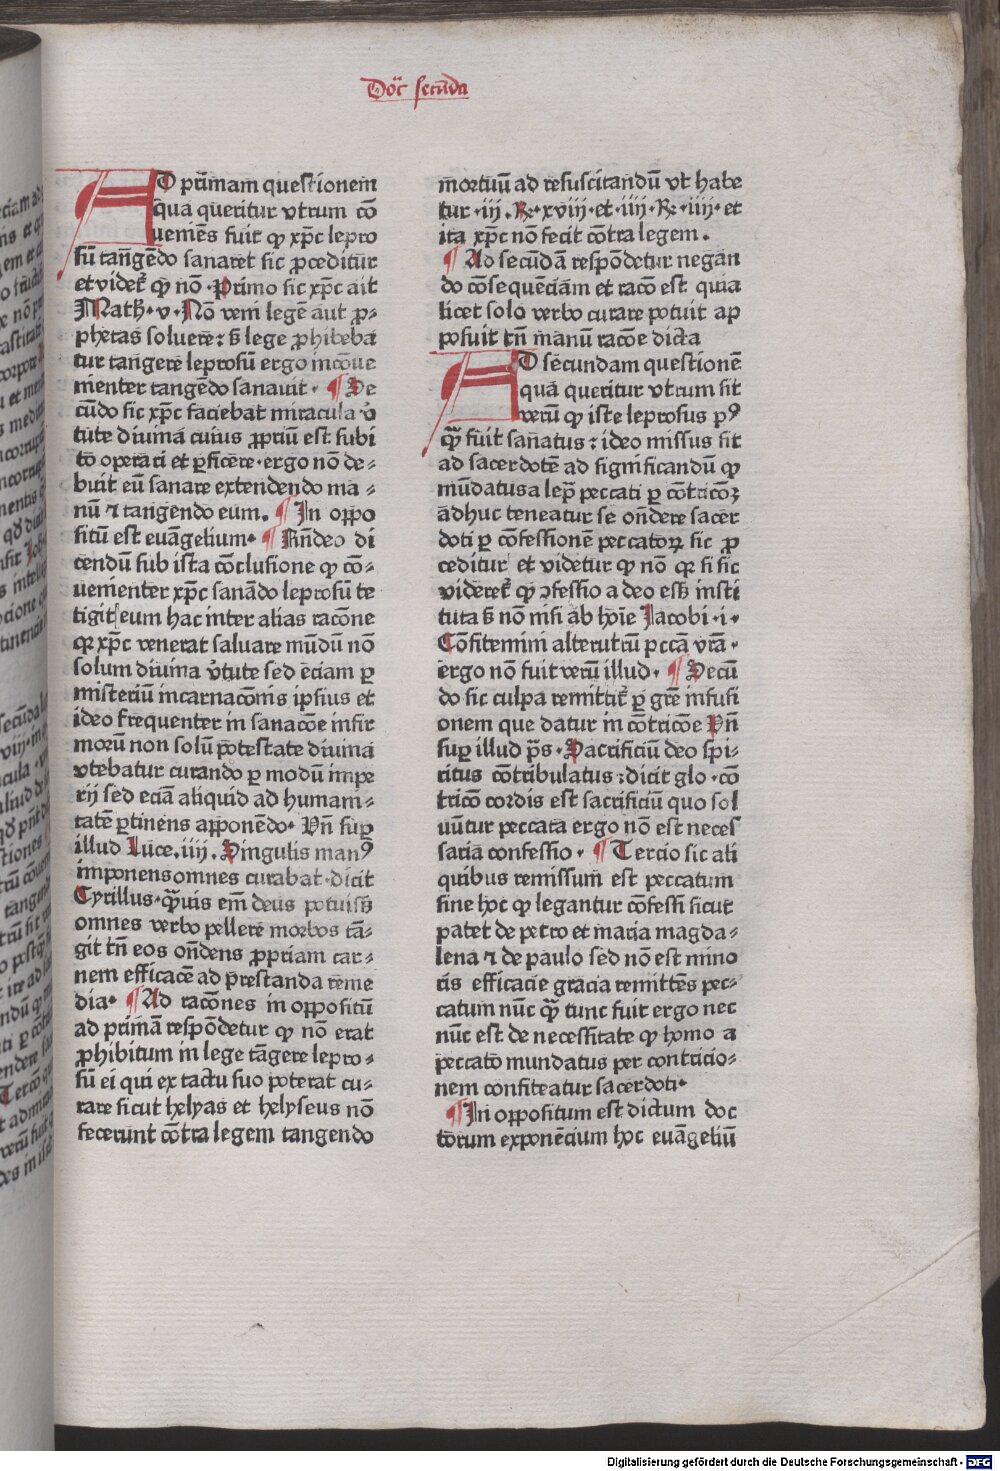 Doc̄ secūda
AD prīmam questionem
qua queritur vtrum cō
uemēs fuit ꝙ xp̄c lepro
sū tangēdo sanaret sic ꝓceditur
et videt᷑ ꝙ nō · Primo sic xp̄c ait
Math̄ · v · Nō veni legē aut ꝓ⸗
phetas soluere: s̄ lege ꝓhibeba
tur tangere leprosū ergo incōue
nienter tangēdo sanauit · ¶ Se
cūdo sic xp̄c faciebat miracula v̄
tute diuina cuius ꝓpriū est subi
to operari et ꝑficere · ergo nō de⸗
buit eū sanare extendendo ma⸗
nū ⁊ tangendo eum. ¶ In oppo
situ̅ est euāgelium · ¶ Rn̄deo di
cendū sub ista cōclusione ꝙ cō⸗
uenienter xp̄c sanādo leprosū te
tigit eum hac inter alias racōne
qꝛ xp̄c venerat saluare mūdū nō
solum diuina v̄tute sed eciam ꝑ
misteriū incarnacōnis ipsius et
ideo frequenter in sanacōe infir
morū non solū potestate diuina
vtebatur curando ꝑ modū impe
rij sed eciā aliquid ad humani⸗
tatē ꝑtinens apponēdo · Vn̄ suꝑ
illud Luce.iiij. Singulis manꝰ
imponens omnes curabat · dicit
Cyrillus · ꝙ̄uis em̄ deus potuiss̄
omnes verbo pellere morbos tā⸗
git tn̄ eos on̄dens ꝓpriam car⸗
nem efficacē ad prestanda reme
dia · ¶ Ad racōnes in oppositū
ad primā respōdetur ꝙ nō erat
ꝓhibitum in lege tāgere lepro⸗
sū ei qui ex tactu suo poterat cu⸗
rare sicut helyas et helyseus nō
fecerunt cōtra legem tangendo
mortuū ad resuscitandū vt habe
tur · iij · Re · xviij · et · iiij · Re · iiij · et
ita xp̄c nō fecit cōtra legem .
¶ Ad secūdā respōdetur negan
do cōsequēciam et raco est quia
licet solo verbo curare potuit ap
posuit tn̄ manū racōe dicta
AD secundam questionē
quā queritur vtrum sit
verū ꝙ iste leprosus pꝰ
ꝙ̄ fuit sanatus : ideo missus sit
ad sacerdotē ad significandū ꝙ
mūdatus a lepͣ peccati ꝑ cōtricōꝫ
adhuc teneatur se on̄dere sacer
doti ꝑ cōfessionē peccatoꝝ sic ꝓ
ceditur et videtur ꝙ nō qꝛ si sic
videret᷑ ꝙ ↄfessio a deo ess̄ insti
tuta s̄ nō nisi ab hoīe Jacobi · i ·
Cōfitemini alterutrū pccā vrā ·
ergo nō fuit verū illud · ¶ Secū
do sic culpa remittit᷑ ꝑ grē infusi
onem que datur in cōtricōe Vn̄
suꝑ illud pͣs · Sacrificiū deo spi⸗
ritus cōtribulatus : dicit glo · cō
tricō cordis est sacrificiū quo sol
uūtur peccata ergo nō est neces
saria confessio · ¶ Tercio sic ali
quibus remissum est peccatum
sine hoc ꝙ legantur cōfessi sicut
patet de petro et maria magda⸗
lena ⁊ de paulo sed nō est mino
ris efficacie gracia remittēs pec⸗
catum nūc ꝙ̄ tunc fuit ergo nec
nūc est de necessitate ꝙ homo a
peccato mundatus per contricio⸗
nem confiteatur sacerdoti ·
¶ In oppositum est dictum doc
torum exponēcium hoc euāgeliū
Digitalisierung gefördert durch die Deutsche Forschungsgemeinschaft - DFG